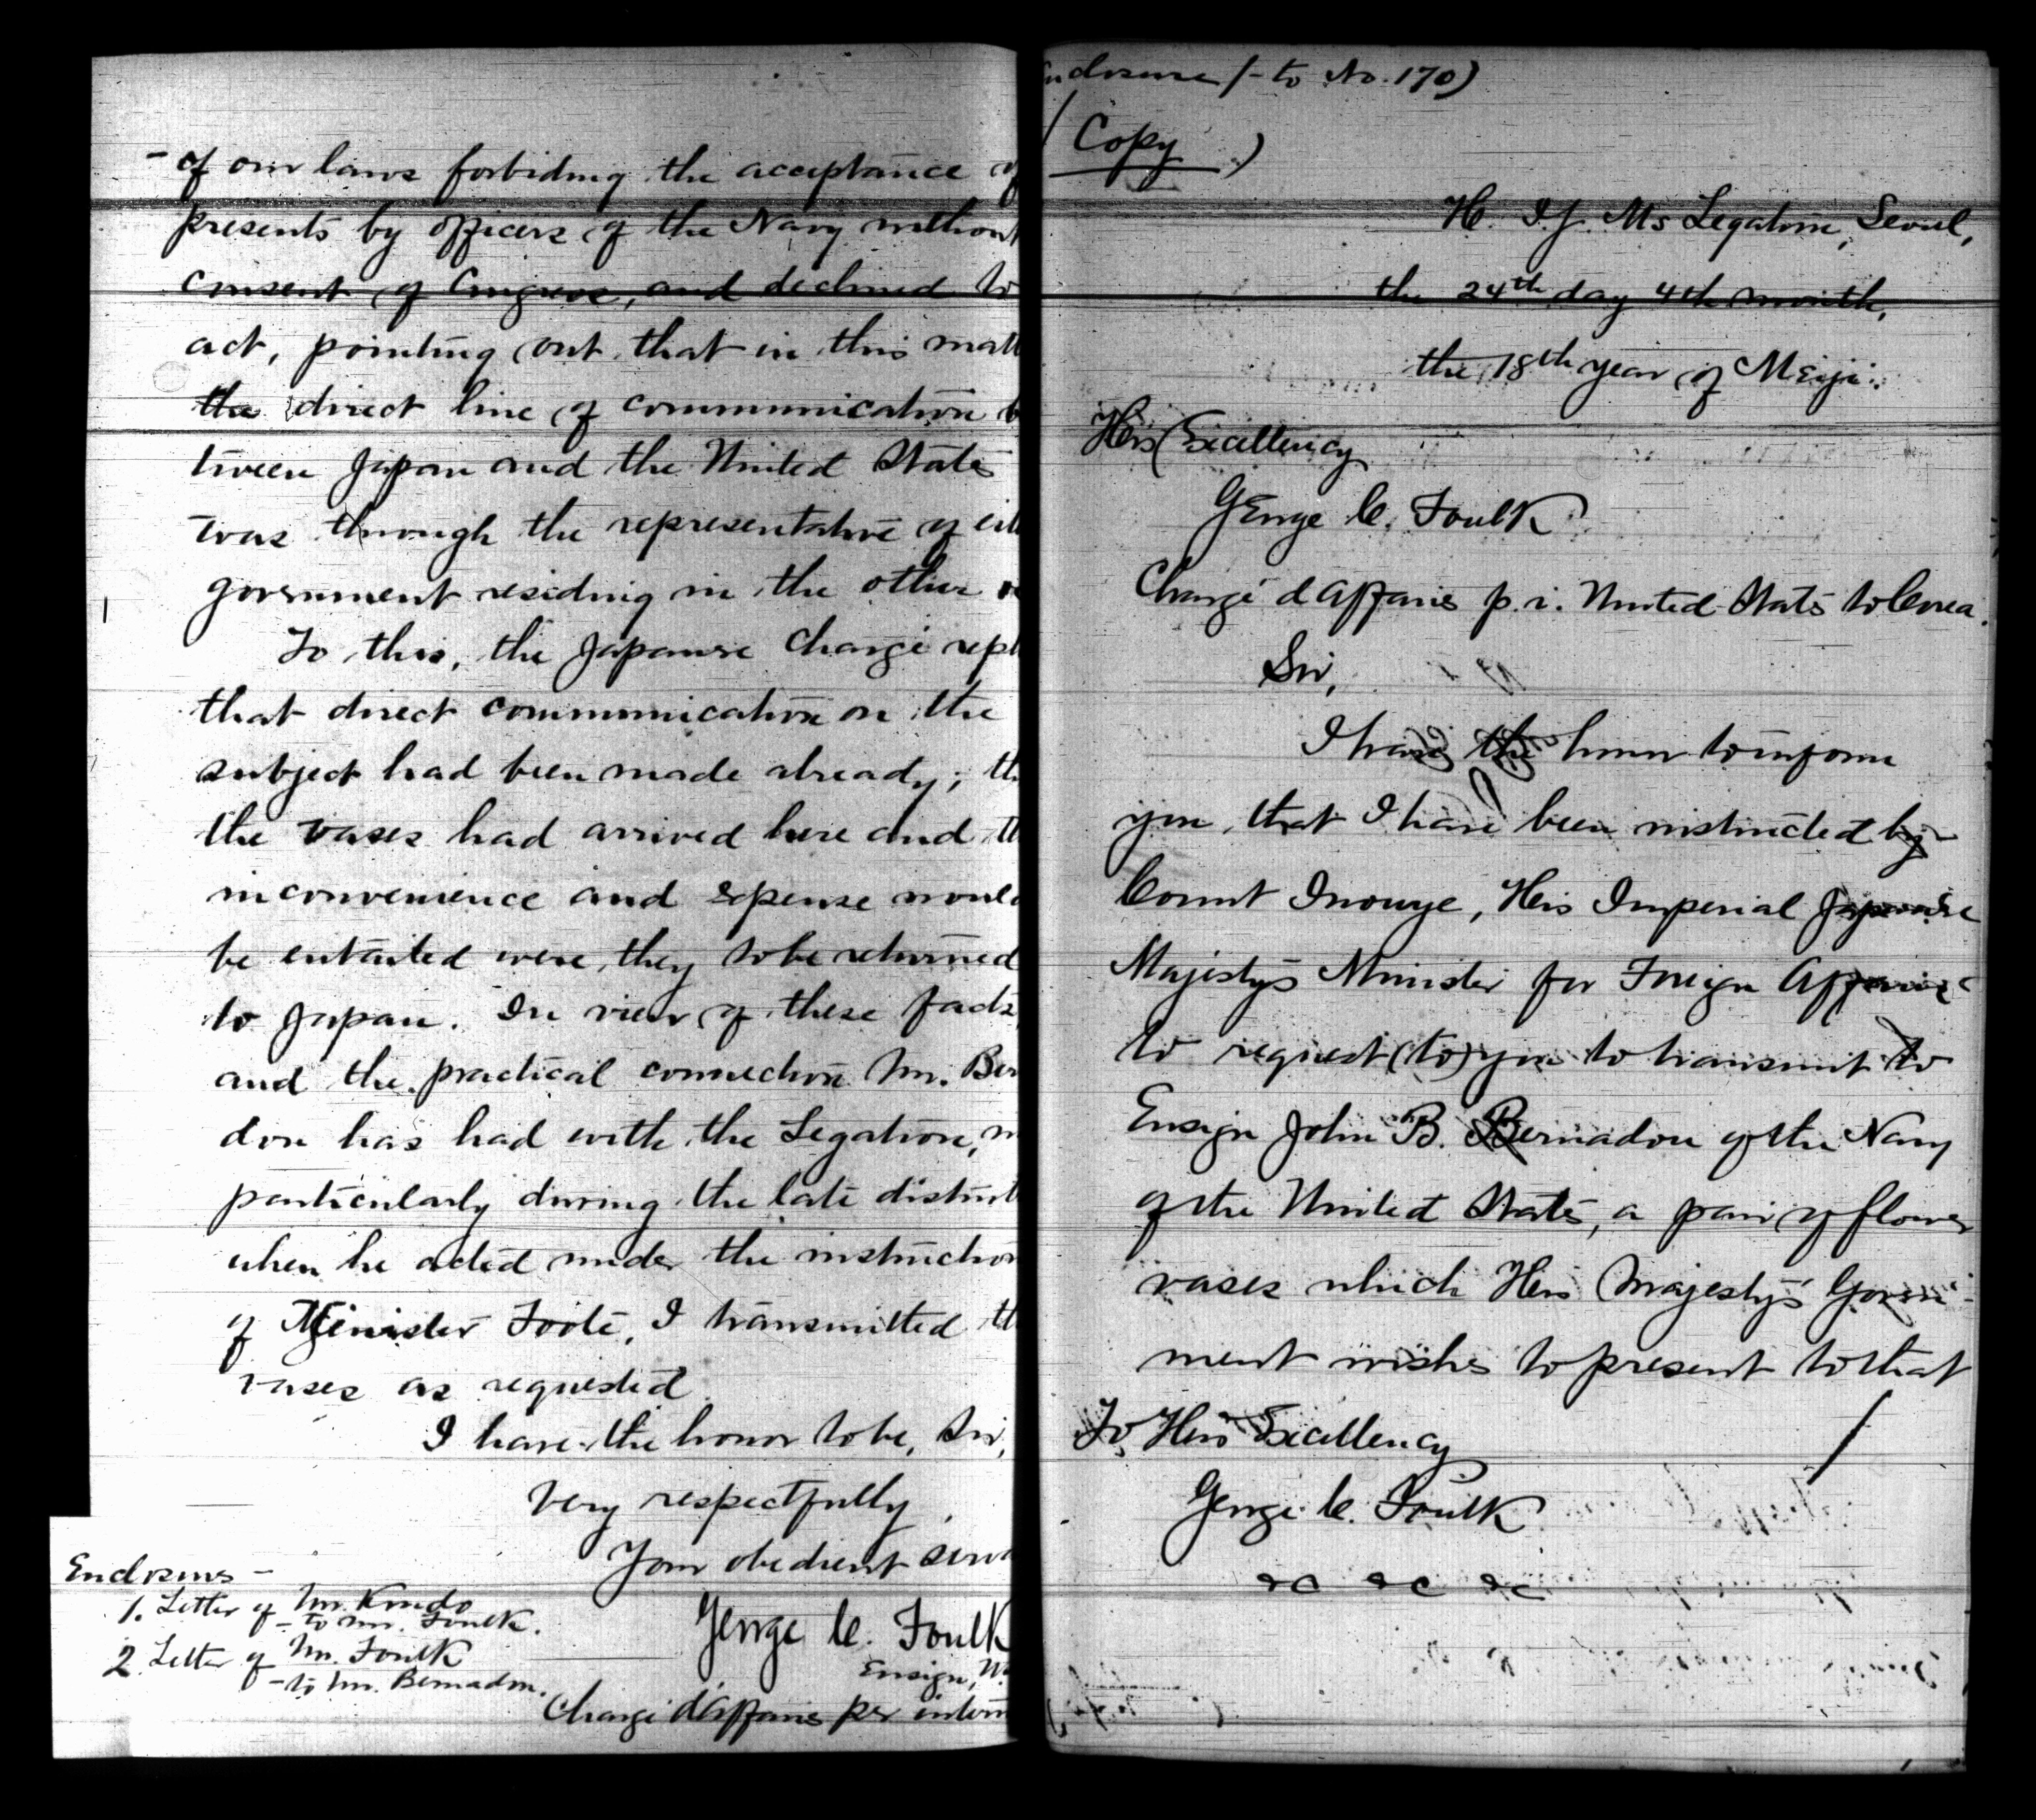 - of our laws forbiding the acceptance of
presents by officers of the Navy without
consent of Congress, and declined to
act, pointing out that in this matt
the direct line of communication b
tween Japan and the United States
was through the representative of eit
government residing in the other
To this, the Japanese Chargé repl
that direct communication on the
subject had been made already; th
the vases had arrived here and th
inconvenience and expense would
be entailed were they to be returned
to Japan. In view of these facts,
and the practical connection Mr. Ber
don has had with the Legation, m
particularly during the late disturb
when he acted under the instruction
of Minister Foote, I transmitted th
vases as requested.
I have the honor to be, Sir,
Very respectfully,
Your obedient serva
George C. Foulk
Ensign, U.
Chargé d'Affaires per interim
Enclosures -
1. Letter of Mr. Kondo
- to Mr. Foulk.
2. Letter of Mr. Foulk
- to Mr. Bernadou.
nclosure 1 - to No. 170)
(Copy)
H. I. J. Ms Legation, Seoul,
the 24th day 4th month,
the 18th year of Meiji.
His Excellency
George C. Foulk
Chargé d'Affaires p. i. United States to Corea.
Sir,
I have the honor to inform
you, that I have been instructed by
Count Inouye, His Imperial Japanese
Majesty's Minister for Foreign Affairs
to request (to) you to transmit to
Ensign John B. Bernadou of the Navy
of the United States, a pair of flower
vases which His Majesty's Govern-
ment wishes to present to that
To His Excellency
George C. Foulk
&c &c &c